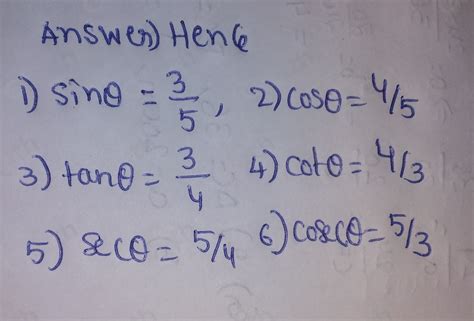 Answer) Hence
1) sinθ = 3/5, 2) cosθ = 4/5
3) tanθ = 3/4 4) cotθ = 4/3
5) secθ = 5/4 6) cosecθ = 5/3